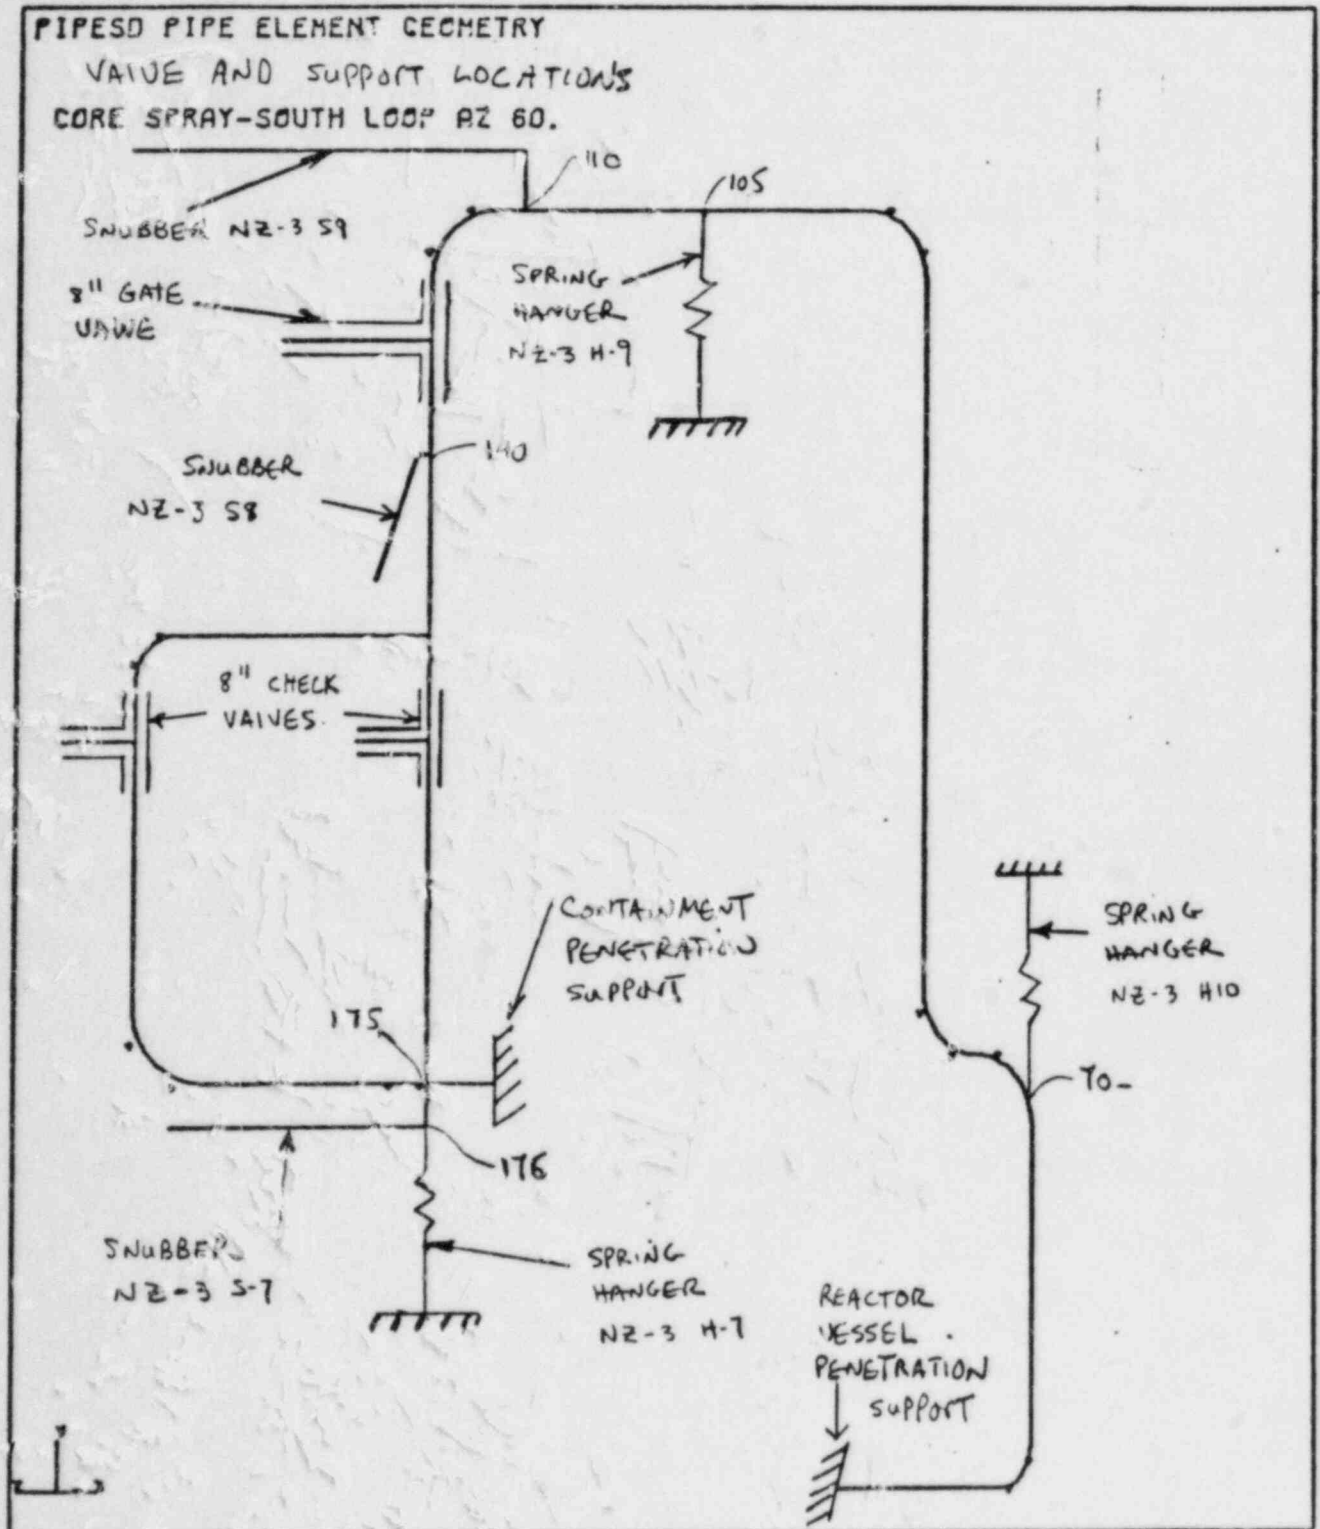 PIPESD PIPE ELEMENT GEOMETRY
VALVE AND SUPPORT LOCATIONS
CORE SPRAY-SOUTH LOOP AZ 60.
110
105
SNUBBER NZ-3 S9
8" GATE
VALVE
SPRING
HANGER
NZ-3 H-9
140
SNUBBER
NZ-3 S8
8" CHECK
VALVES.
CONTAINMENT
PENETRATION
SUPPORT
SPRING
HANGER
NZ-3 H10
175
70-
176
SNUBBERS
NZ-3 S-7
SPRING
HANGER
NZ-3 H-7
REACTOR
VESSEL
PENETRATION
SUPPORT